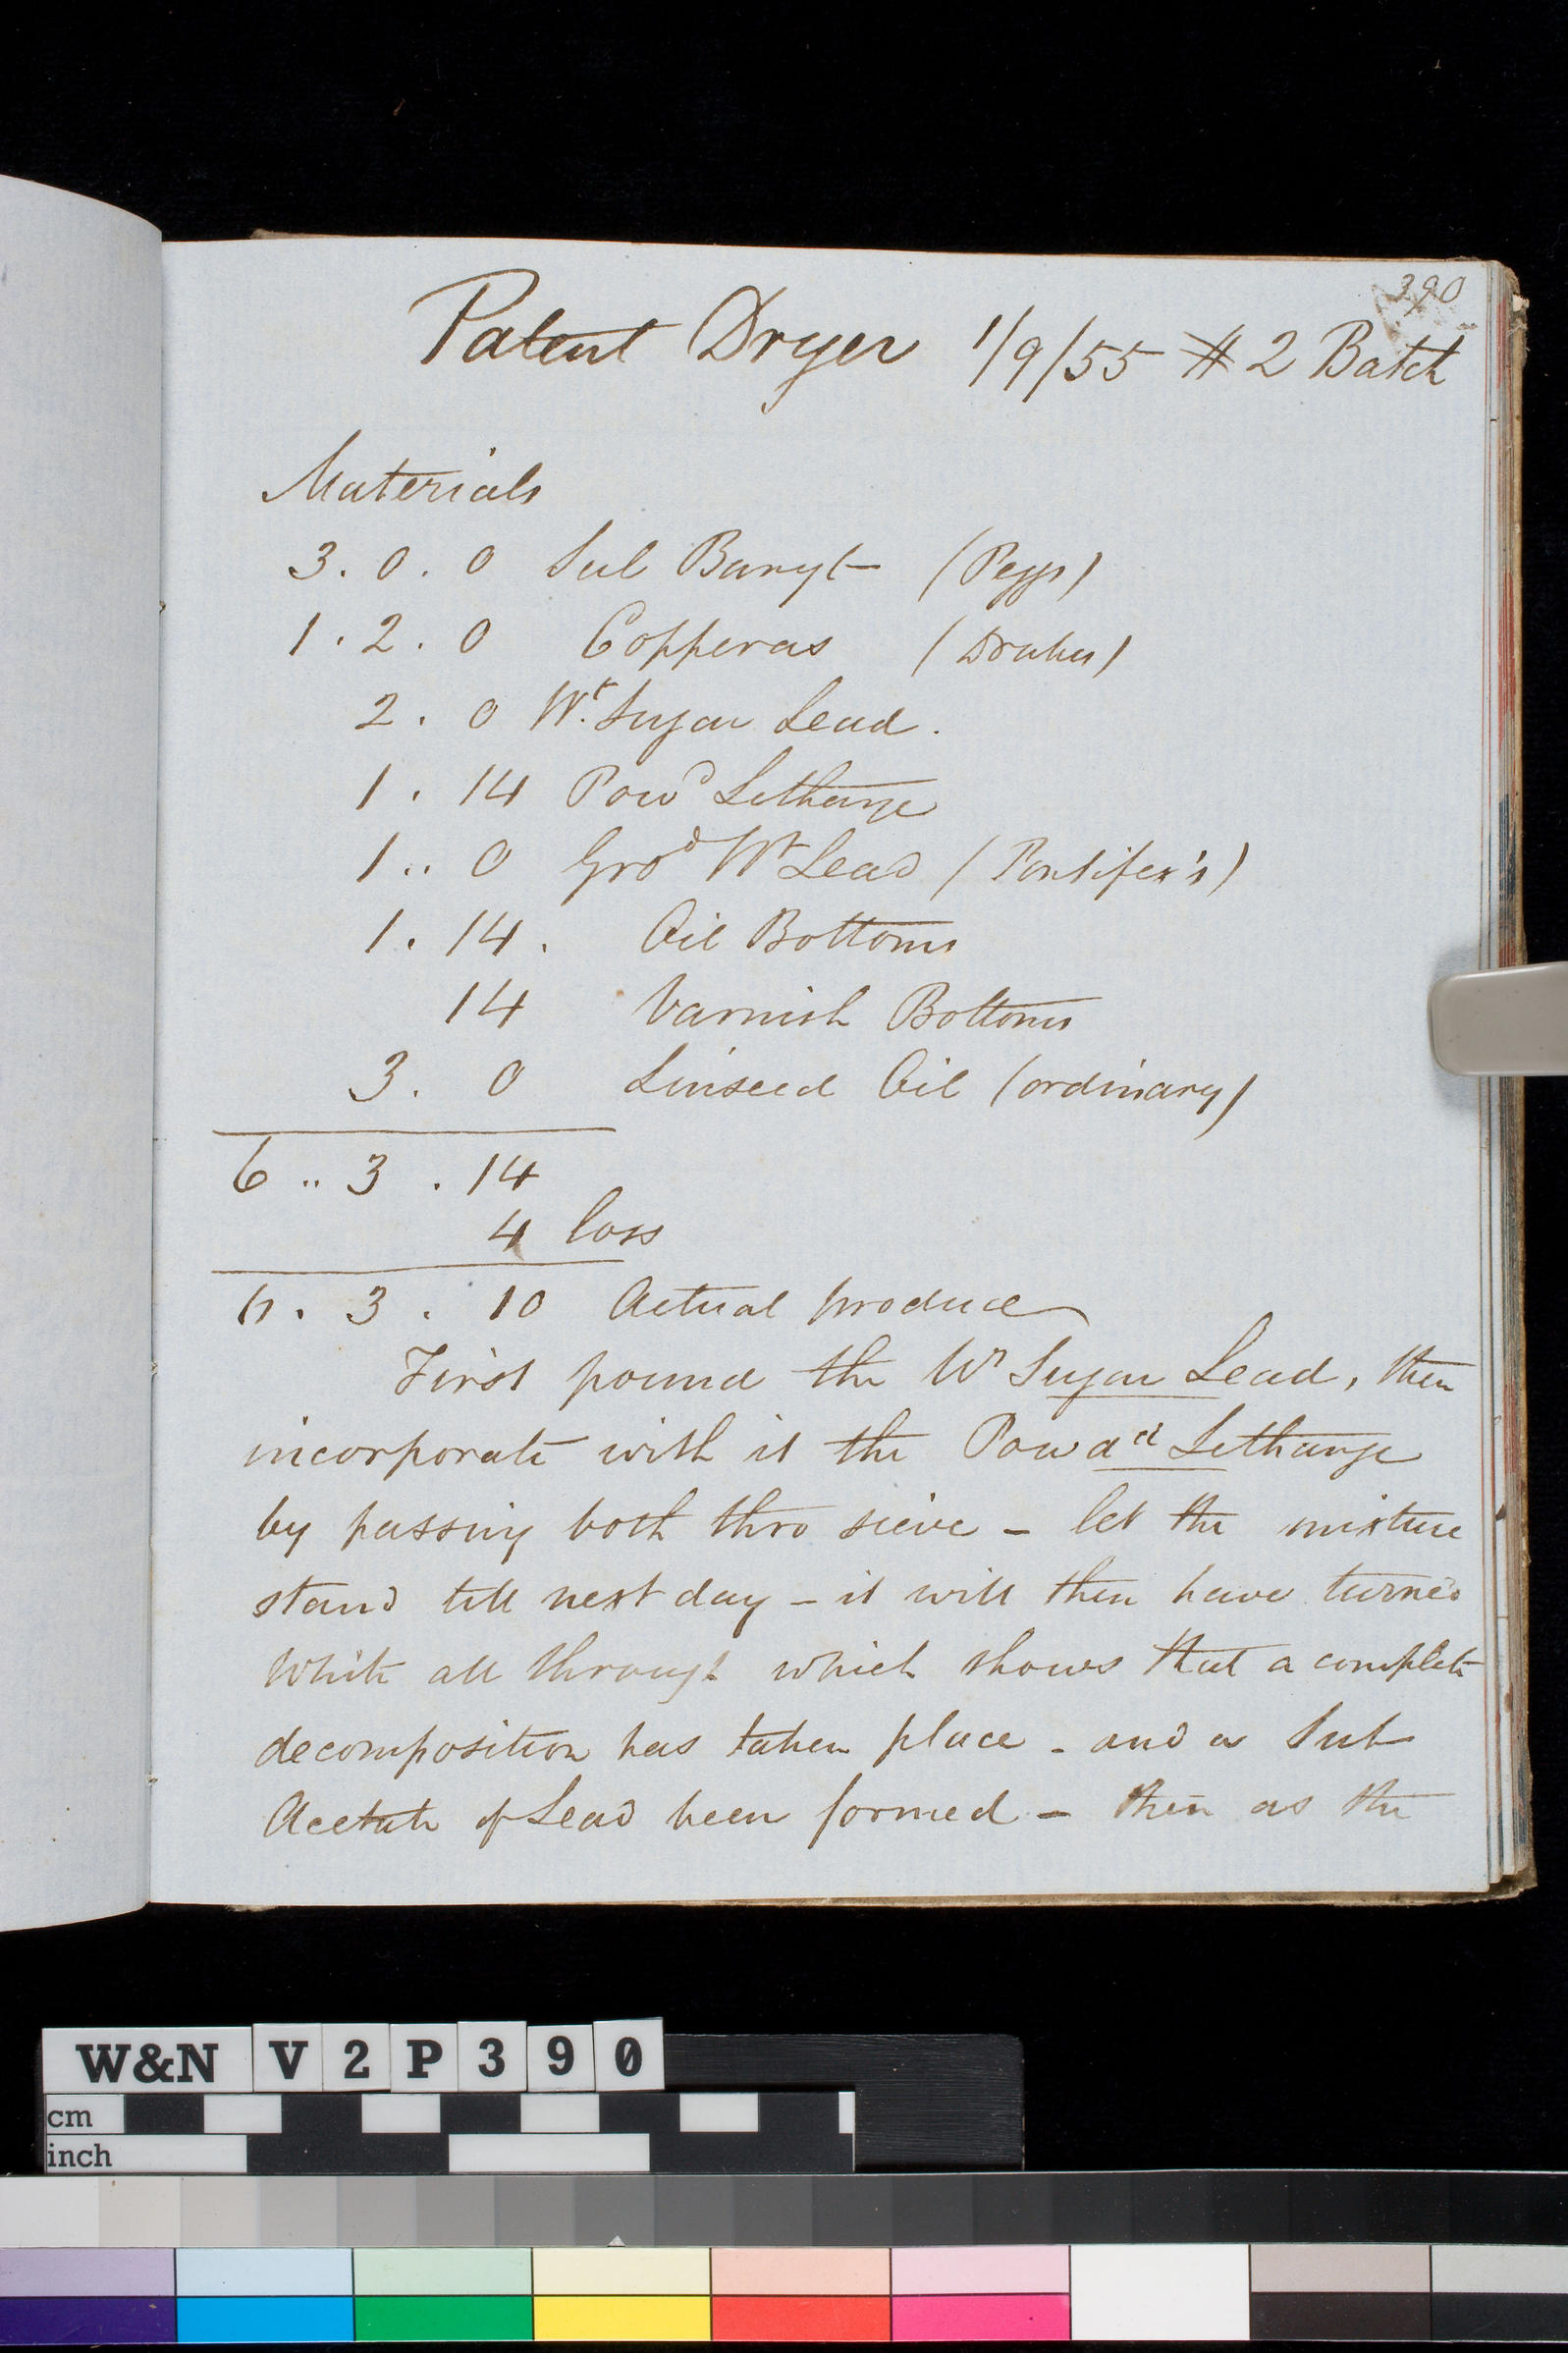 390
Patent Dryer 1/9/55 # 2 Batch
Materials
3. 0. 0 Sul Baryt (Peggs)
1. 2. 0 Copperas (Drakes)
2. 0 Wt. Sugar Lead.
1. 14 Powd Letharge
1.. 0 Grod Wt Lead (Pontifex's)
1. 14. Oil Bottoms
14 Varnish Bottoms
3. 0 Linseed Oil (ordinary)
6 .. 3 . 14
4 loss
6. 3. 10 Actual produce
First pound the Wt Sugar Lead, then
incorporate with it the Powdd Letharge
by passing both thro sieve - let the mixture
stand till next day - it will then have turned
White all through which shows that a complete
decomposition has taken place - and a Sub
Acetate of Lead been formed - then as the
W&N V2P390
cm
inch